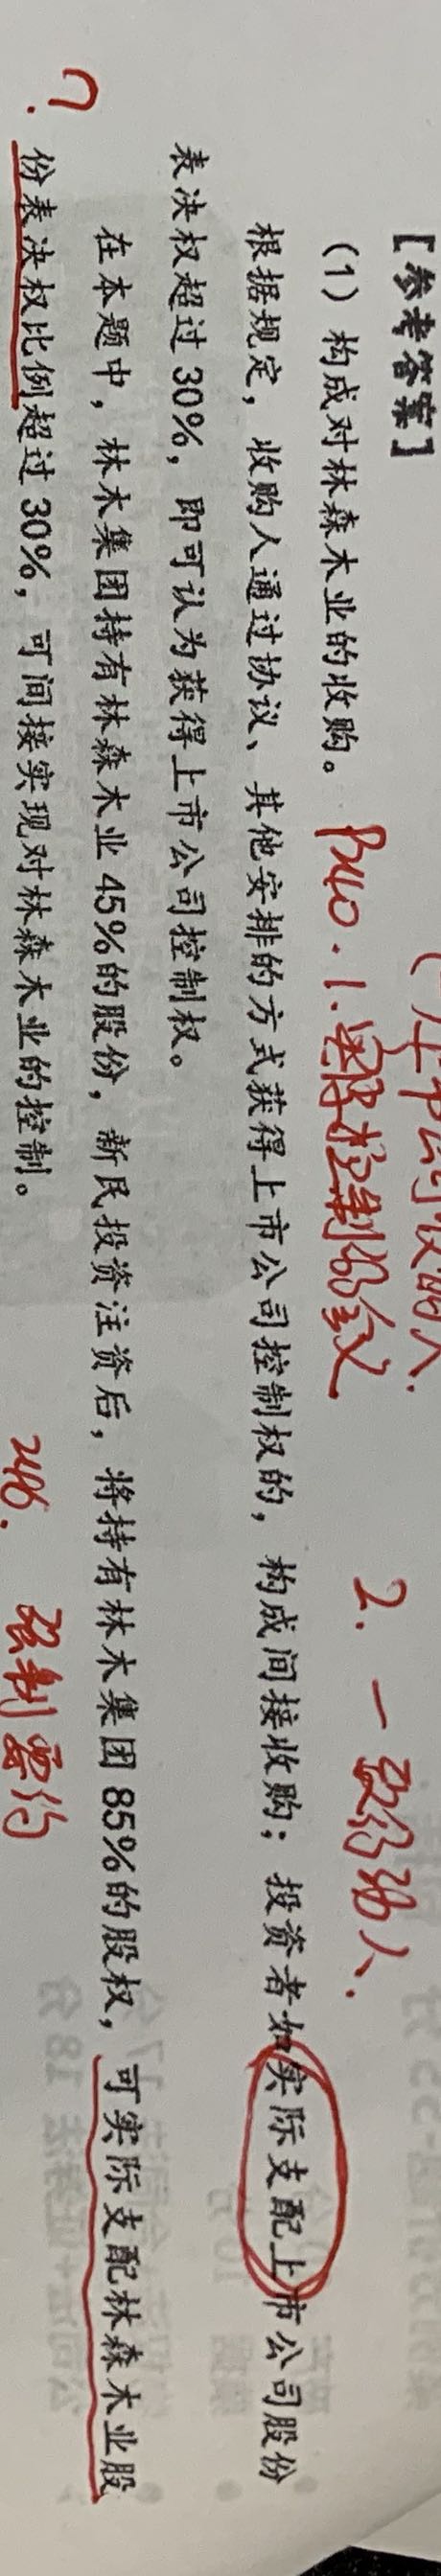 【参考答案】
(1) 构成对林森木业的收购。 P240.1.
2. 一致行动人.
根据规定，收购人通过协议、其他安排的方式获得上市公司控制权的，构成间接收购；投资者如实际支配上市公司股份
表决权超过30%，即可认为获得上市公司控制权。
在本题中，林木集团持有林森木业45%的股份，新民投资注资后，将持有林木集团85%的股权，可实际支配林森木业股
?
份表决权比例超过30%，可间接实现对林森木业的控制。
246. 强制要约